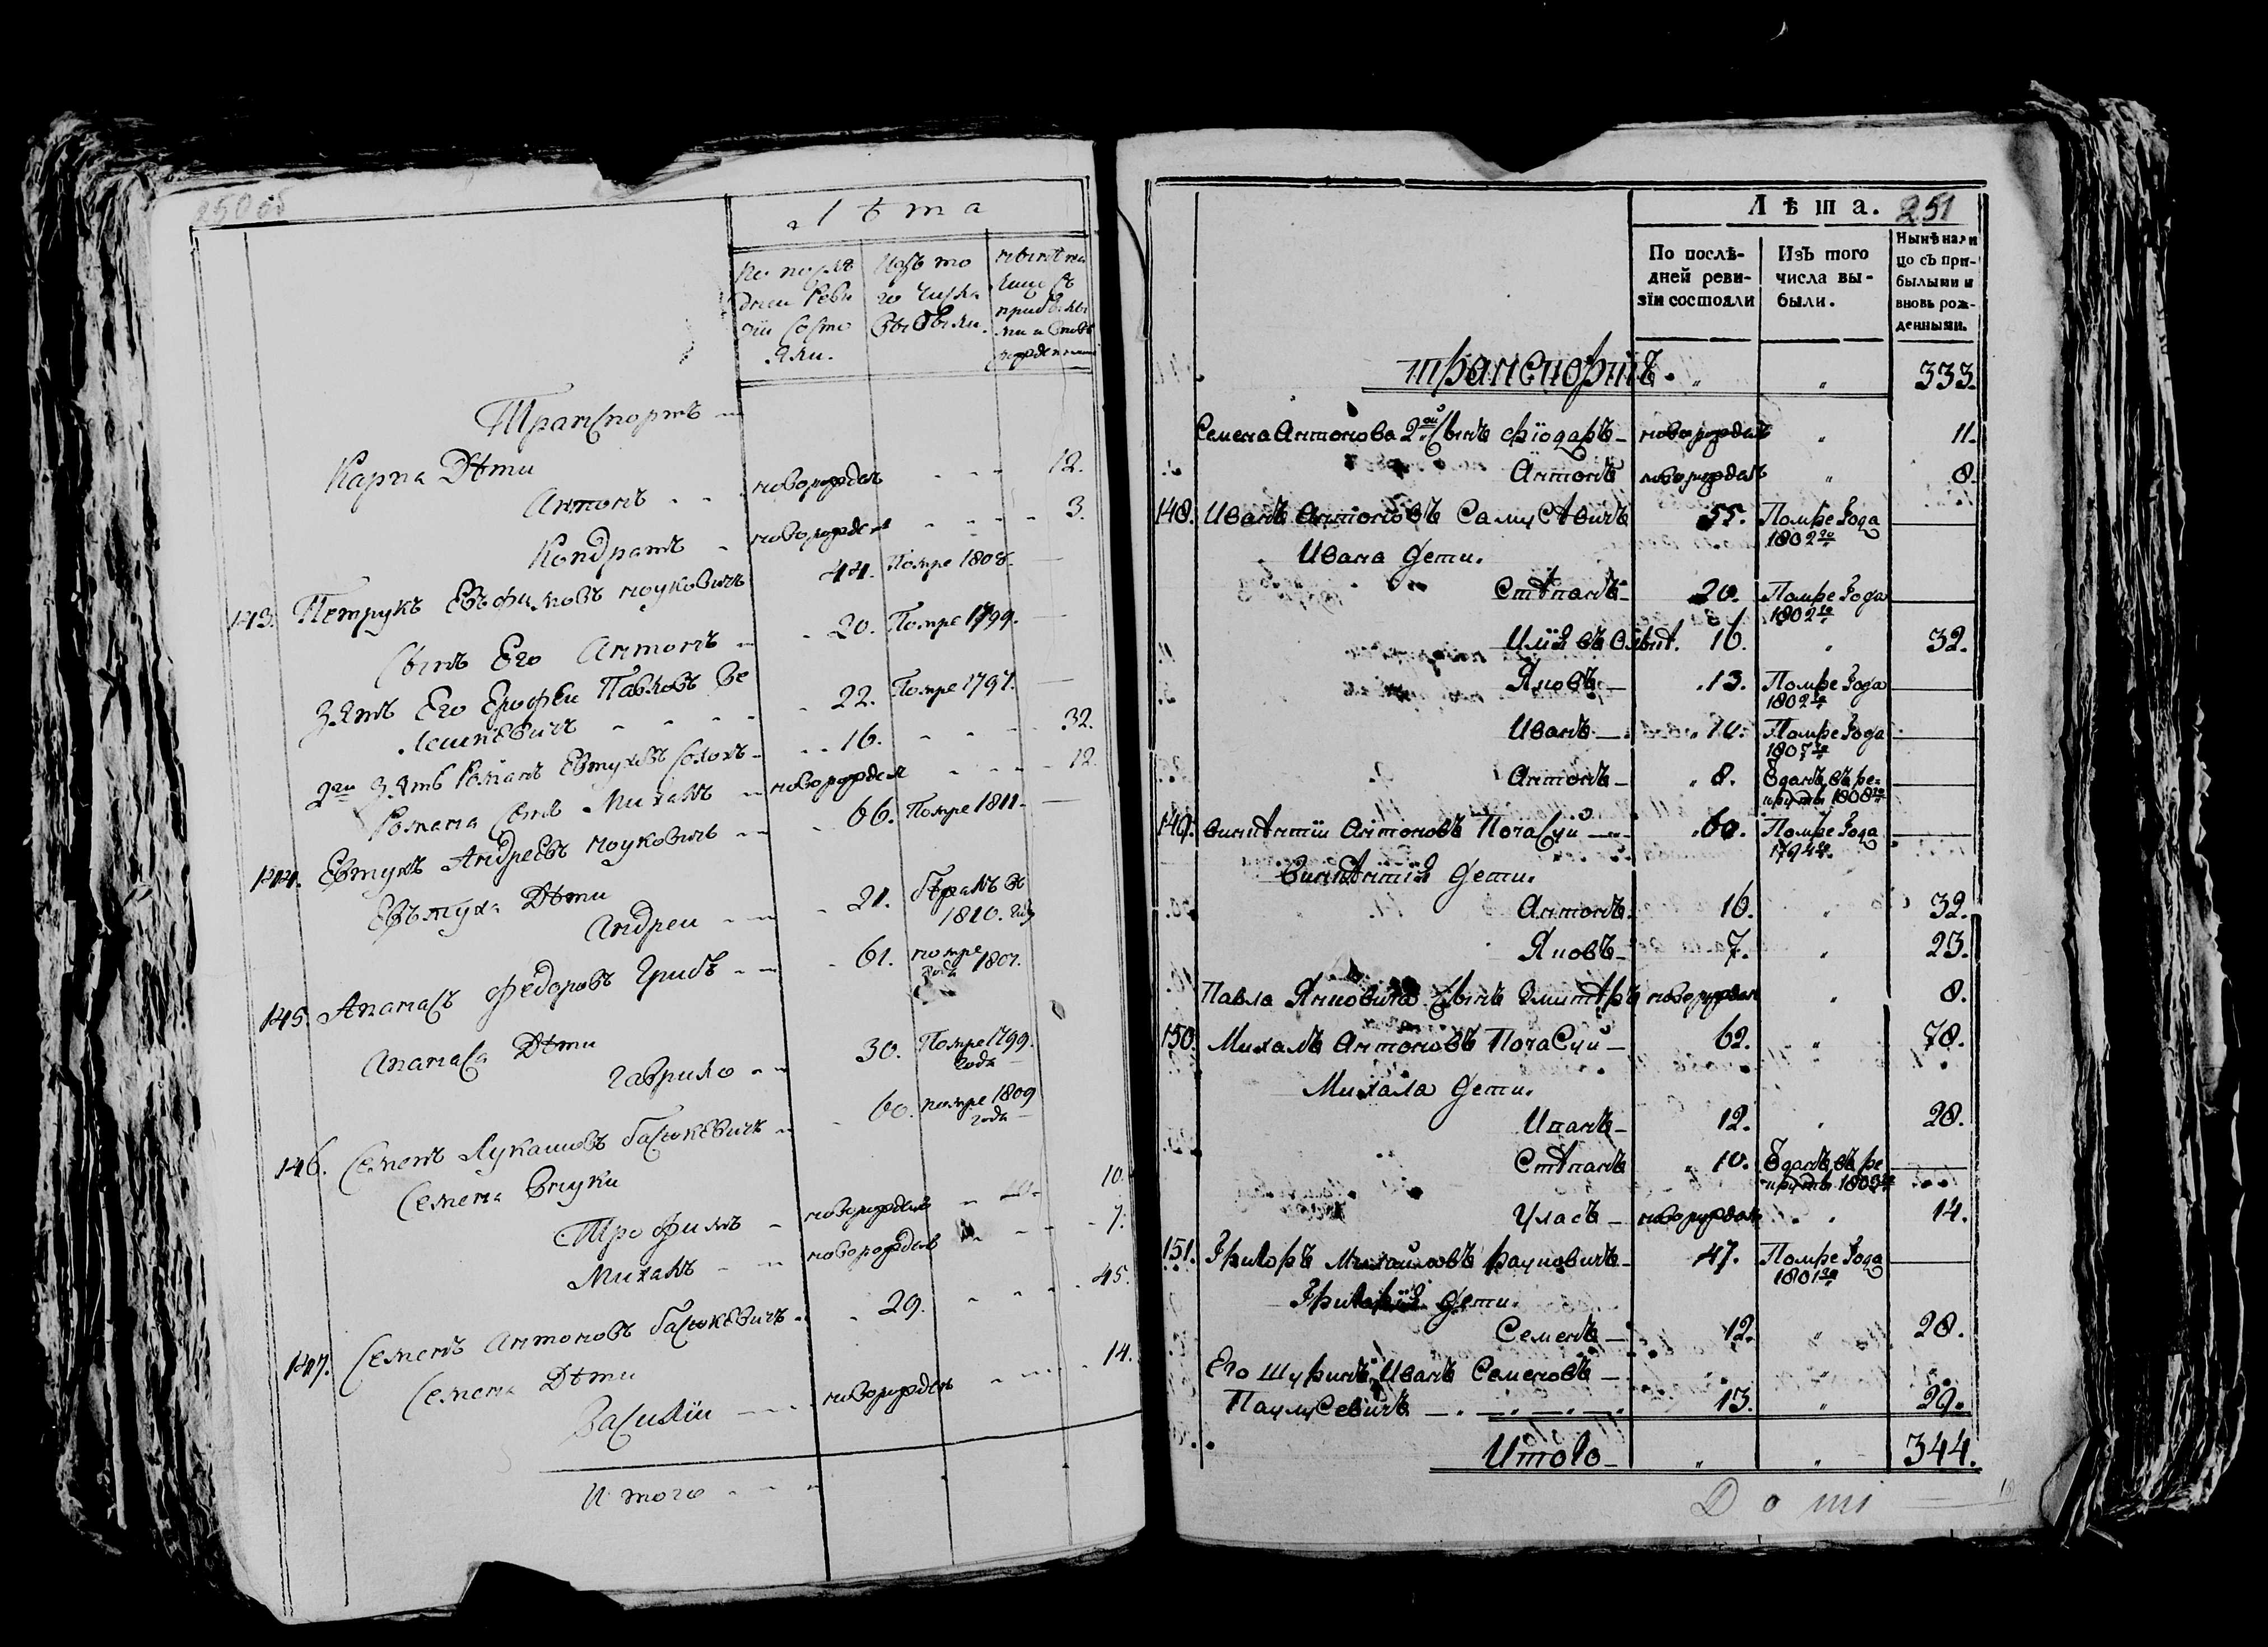 Лѣта
По послѣ
дней Реви
зіи Состо
яли.
Изъ то
го Числа
выбыли.
нынѣ на
лицо съ
прибылы
ми и вновь
рожденными
Транспортъ
Карпа Дѣти
Антонъ новорожденъ 12.
Кондратъ новорожденъ 3.
143. Петрукъ Евъфимовъ 44. Помре 1808.
Сынъ Его Антонъ 20. Помре 1799.
Зять Его Ерофеи Павловъ Ве
лешкевичъ 22. Помре 1797.
2ги Зять Романъ Евтуховъ 16. 32.
Романа Сынъ Михалъ новорожден 12.
144. Евтухъ Андреевъ 66. Помре 1811.
Евътуха Дѣти
Андреи 21. 1810.
145. Апанасъ Федоровъ Грибъ 61. помре
годѣ 1807.
Апанаса Дѣти
Гаврило 30. Помре 1799.
годѣ
146. Семенъ Лукашовъ Басюкевичъ 60. помре 1809
годѣ
Семена Внуки
Трофимъ новорожденъ 10.
Михалъ новорожденъ 7.
147. Семенъ Антоновъ Басюкевичъ 29. 45.
Семена Дѣти
Василіи новорожденъ 14.
Итого
Лѣта. 251
По послѣ-
дней реви-
зіи состояли
Изъ того
числа вы-
были.
Нынѣ нали
цо съ при-
былыми и
вновь рож-
денными.
транспортъ. „ „ 333.
Семена Антонова 2ой Сынъ Фіодаръ новорожденъ „ 11.
Антонъ новорожденъ „ 8.
148. Иванъ Антоновъ Самусевичъ 55. Помре Года
1802го
Ивана Дети.
Стѣпанъ 20. Помре Года
1802го
Иліа 16. „ 32.
Яновъ 13. Помре Года
1802го
Иванъ 10. Помре Года
1807го
Антонъ 8. Зданъ въ ре-
круты 1808го
149. Винцѣнтіи Антоновъ Почасуй 60. Помре Года
Винцѣнтія Дети.
Антонъ 16. „ 32.
Яновъ 7. „ 23.
Павла Янновича Сынъ новорожден „ 8.
150. Михалъ Антоновъ Почасуй 62. „ 78.
Михала Дети.
Иванъ 12. „ 28.
Стѣпанъ 10. Зданъ въ ре
круты
Уласъ новорожденъ „ 14.
151. Григоръ Михайловъ 47. Помре Года
1801го
Григорія Дети.
Семенъ 12. „ 28.
Его Шуринъ Иванъ Семеновъ
13. „ 29.
Итого „ „ 344.